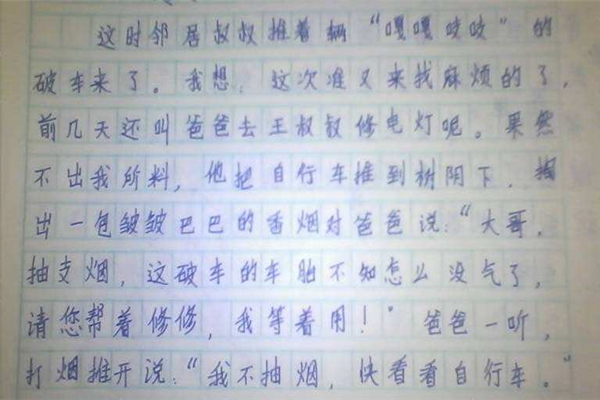 这时邻居叔叔推着辆“嘎嘎吱吱”的
破车来了。我想，这次准又来找麻烦的了，
前几天还叫爸爸去王叔叔修电灯呢。果然
不出我所料，他把自行车推到树阴下，掏
出一包皱皱巴巴的香烟对爸爸说：“大哥，
抽支烟，这破车的车胎不知怎么没气了，
请您帮着修修，我等着用！”爸爸一听，
打烟推开说：“我不抽烟，快看看自行车。”